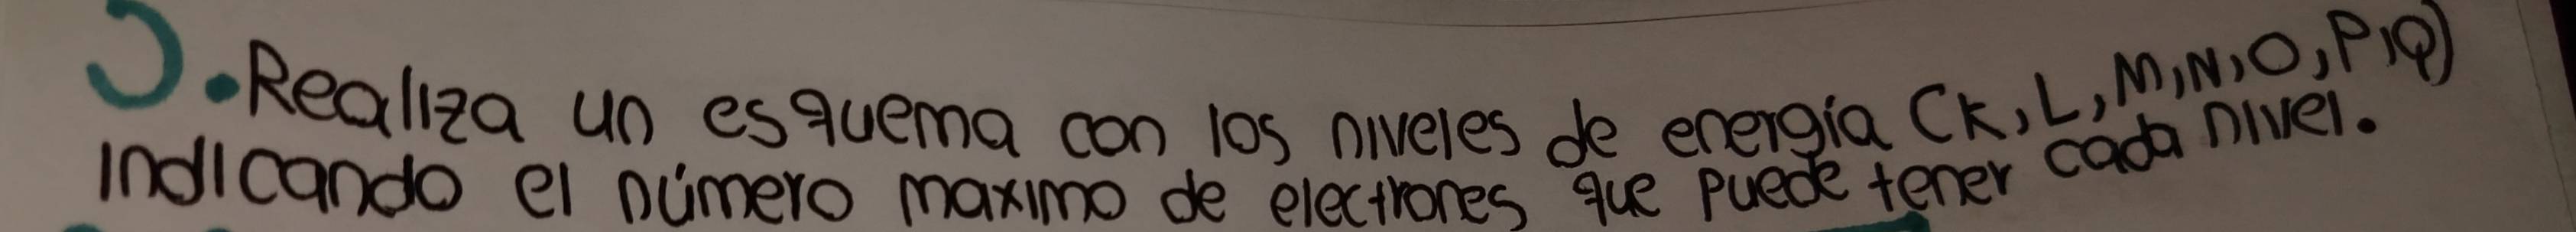 5. Realiza un esquema con los niveles de energía (K, L, M, N, O, P, Q)
indicando el número maximo de electrones que puede tener cada nivel.